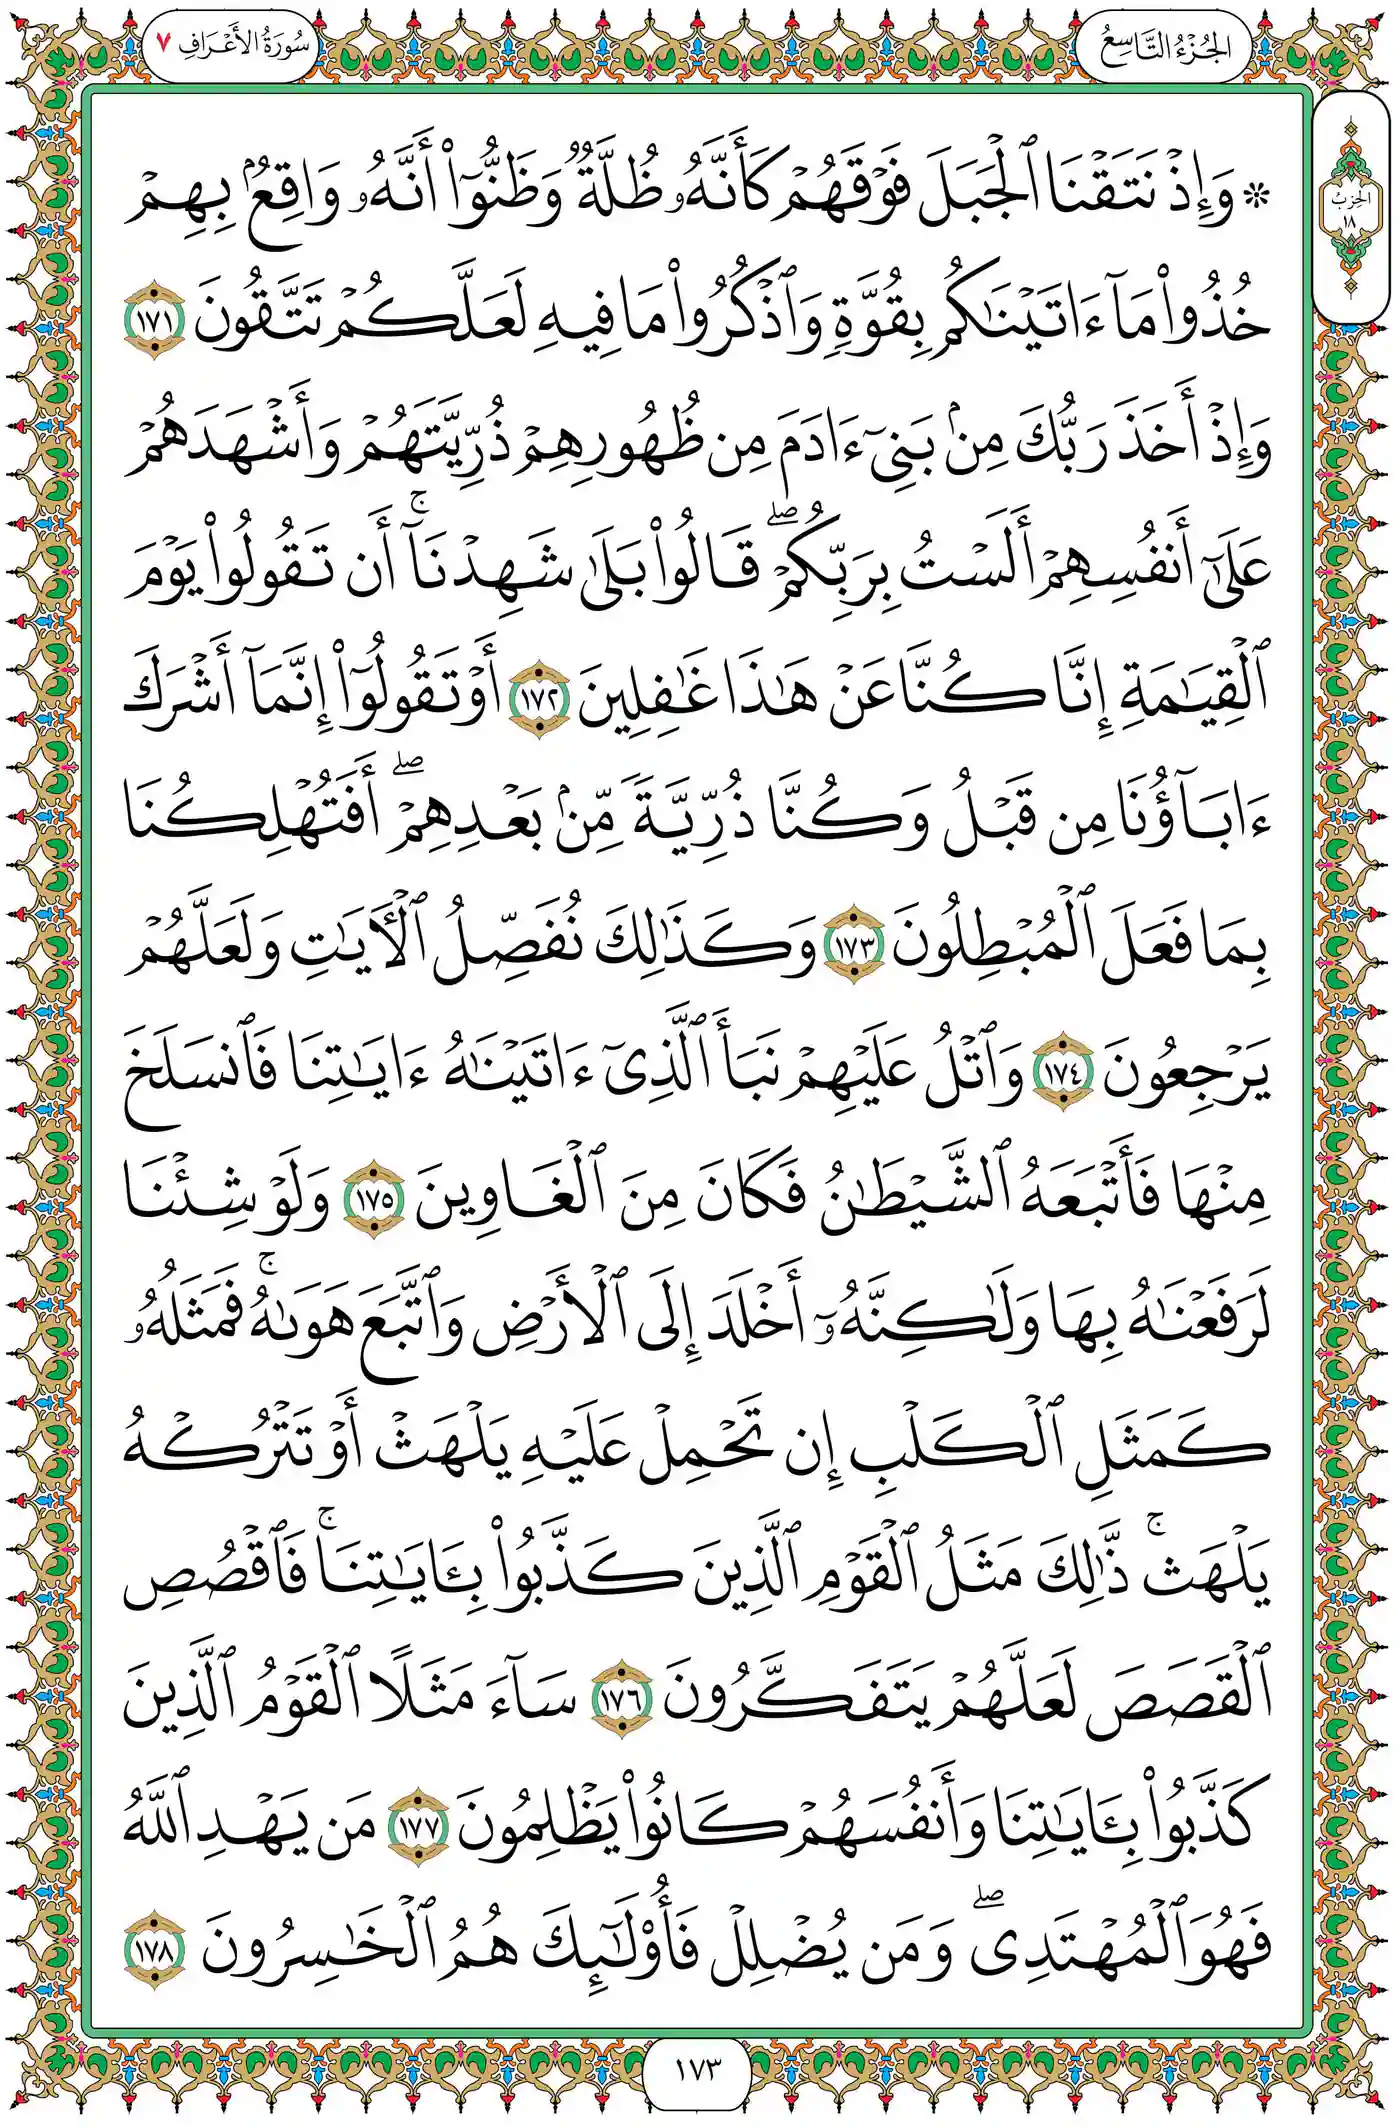 الجُزْءُ التَّاسِعُ
سُورَةُ الأَعْرَافِ ٧
الحِزْبُ
١٨
۞ وَإِذْ نَتَقْنَا ٱلْجَبَلَ فَوْقَهُمْ كَأَنَّهُۥ ظُلَّةٌۭ وَظَنُّوٓا۟ أَنَّهُۥ وَاقِعٌۢ بِهِمْ
خُذُوا۟ مَآ ءَاتَيْنَٰكُم بِقُوَّةٍۢ وَٱذْكُرُوا۟ مَا فِيهِ لَعَلَّكُمْ تَتَّقُونَ ١٧١
وَإِذْ أَخَذَ رَبُّكَ مِنۢ بَنِىٓ ءَادَمَ مِن ظُهُورِهِمْ ذُرِّيَّتَهُمْ وَأَشْهَدَهُمْ
عَلَىٰٓ أَنفُسِهِمْ أَلَسْتُ بِرَبِّكُمْ ۖ قَالُوا۟ بَلَىٰ شَهِدْنَآ ۚ أَن تَقُولُوا۟ يَوْمَ
ٱلْقِيَٰمَةِ إِنَّا كُنَّا عَنْ هَٰذَا غَٰفِلِينَ ١٧٢ أَوْ تَقُولُوٓا۟ إِنَّمَآ أَشْرَكَ
ءَابَآؤُنَا مِن قَبْلُ وَكُنَّا ذُرِّيَّةًۭ مِّنۢ بَعْدِهِمْ ۖ أَفَتُهْلِكُنَا
بِمَا فَعَلَ ٱلْمُبْطِلُونَ ١٧٣ وَكَذَٰلِكَ نُفَصِّلُ ٱلْءَايَٰتِ وَلَعَلَّهُمْ
يَرْجِعُونَ ١٧٤ وَٱتْلُ عَلَيْهِمْ نَبَأَ ٱلَّذِىٓ ءَاتَيْنَٰهُ ءَايَٰتِنَا فَٱنسَلَخَ
مِنْهَا فَأَتْبَعَهُ ٱلشَّيْطَٰنُ فَكَانَ مِنَ ٱلْغَاوِينَ ١٧٥ وَلَوْ شِئْنَا
لَرَفَعْنَٰهُ بِهَا وَلَٰكِنَّهُۥٓ أَخْلَدَ إِلَى ٱلْأَرْضِ وَٱتَّبَعَ هَوَىٰهُ ۚ فَمَثَلُهُۥ
كَمَثَلِ ٱلْكَلْبِ إِن تَحْمِلْ عَلَيْهِ يَلْهَثْ أَوْ تَتْرُكْهُ
يَلْهَث ۚ ذَّٰلِكَ مَثَلُ ٱلْقَوْمِ ٱلَّذِينَ كَذَّبُوا۟ بِـَٔايَٰتِنَا ۚ فَٱقْصُصِ
ٱلْقَصَصَ لَعَلَّهُمْ يَتَفَكَّرُونَ ١٧٦ سَآءَ مَثَلًا ٱلْقَوْمُ ٱلَّذِينَ
كَذَّبُوا۟ بِـَٔايَٰتِنَا وَأَنفُسَهُمْ كَانُوا۟ يَظْلِمُونَ ١٧٧ مَن يَهْدِ ٱللَّهُ
فَهُوَ ٱلْمُهْتَدِى ۖ وَمَن يُضْلِلْ فَأُو۟لَٰٓئِكَ هُمُ ٱلْخَٰسِرُونَ ١٧٨
١٧٣